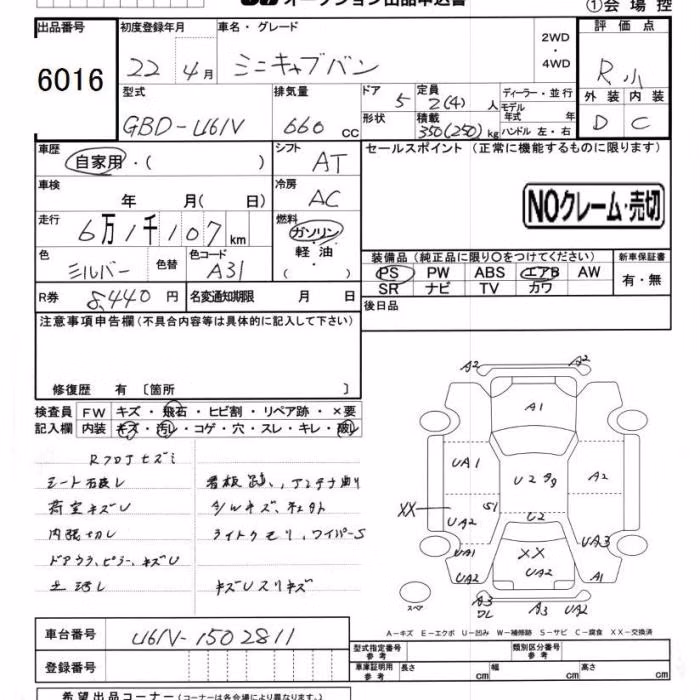 オークション出品申込書
①会場控
出品番号
6016
初度登録年月
22年 4月
車名・グレード
ミニキャブバン
2WD
・
4WD
評価点
R小
外装 内装
D C
型式
GBD-U61V
排気量
660 cc
ドア
5
形状
定員
2(4) 人
積載
350(250)kg
ディーラー・並行
モデル年式 年
ハンドル 左・右
車歴
自家用・( )
シフト
AT
セールスポイント (正常に機能するものに限ります)
NOクレーム・売切
車検
年 月( 日)
冷房
AC
走行
6万1千107 km
燃料
ガソリン
・
軽油
・
( )
色
シルバー
色替
色コード
A31
装備品 (純正品に限り〇をつけてください)
新車保証書
PS PW ABS エアB AW
SR ナビ TV カワ
有・無
R券
8,440 円
名変通知期限 月 日
後日品
注意事項申告欄 (不具合内容等は具体的に記入して下さい)
修復歴 有 〔箇所 〕
検査員記入欄
FW キズ・飛石・ヒビ割・リペア跡・×要
内装 キズ・汚レ・コゲ・穴・スレ・キレ・破レ
シート破レ
荷室キズU
内張切レ
ドアウラ、ピラーキズU
看板跡、アンテナ曲り
ライトクモリ、ワイパーS
キズUスリキズ
A2 A2
A1
UA1
U2
A2
S1
XX
UA2
U2
UA1
UA2
XX
UA2
UA3
A1
スペア
A3
A3
UA2
A-キズ E-エクボ U-凹み W-補修跡 S-サビ C-腐食 XX-交換済
車台番号
U61V-1502811
登録番号
型式指定番号
参考
類別区分番号
参考
車庫証明用
参考
長さ cm
幅 cm
高さ cm
希望出品コーナー (コーナーは各会場により異なります)